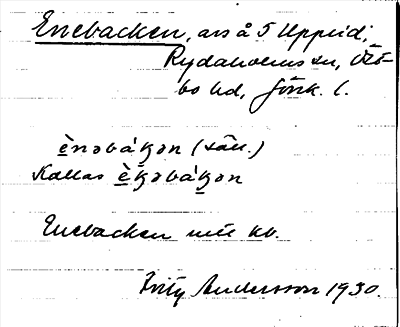 Enebacken, avs å 5 Uppeid;
Rydaholms sn, Öst-
bo hd, Jönk. l.
ènəbáʞən (sän.)
Kallas èʞəbáʞən
Enebacken utt. kb.
Fritz Andersson 1930.